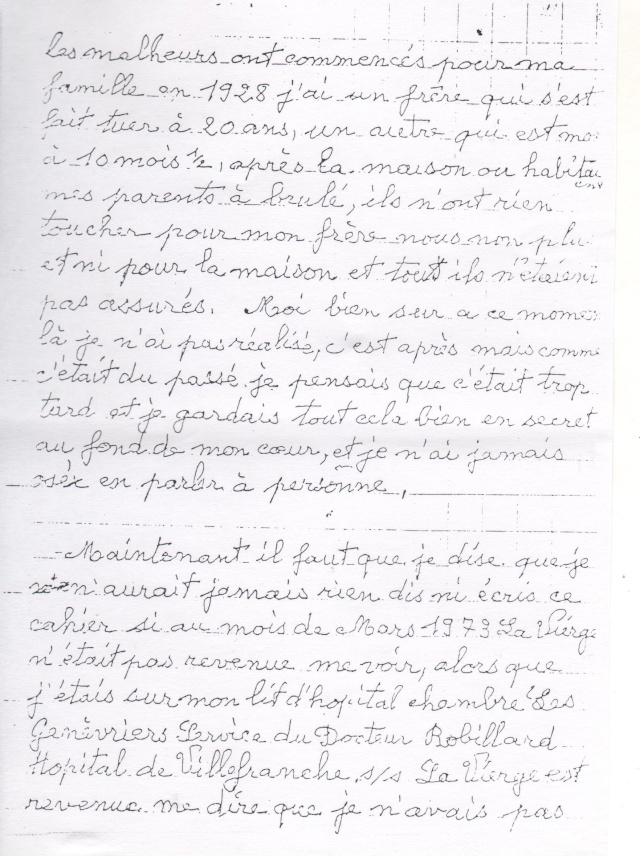 Les malheurs ont commencés pour ma
famille en 1928 j'ai un frère qui s'est
fait tuer à 20 ans, un autre qui est mo
à 10 mois ½, après la maison ou habitai
ent
mes parents à brulé, ils n'ont rien
toucher pour mon frère nous non plu
et ni pour la maison et tout ils n'étaient
pas assurés. Moi bien sur a ce momen
là je n'ai pas réalisé, c'est après mais comme
c'était du passé je pensais que c'était trop
tard et je gardais tout cela bien en secret
au fond de mon cœur, et je n'ai jamais
oséx en parler à personne,
Maintenant il faut que je dise que je
n'aurait jamais rien dis ni écris ce
cahier si au mois de Mars 1973 La Vierge
n'était pas revenue me voir, alors que
j'étais sur mon lit d'hopital chambre "Les
Genèvriers Service du Docteur Robillard
Hopital de Villefranche s/s La Vierge est
revenue me dire que je n'avais pas